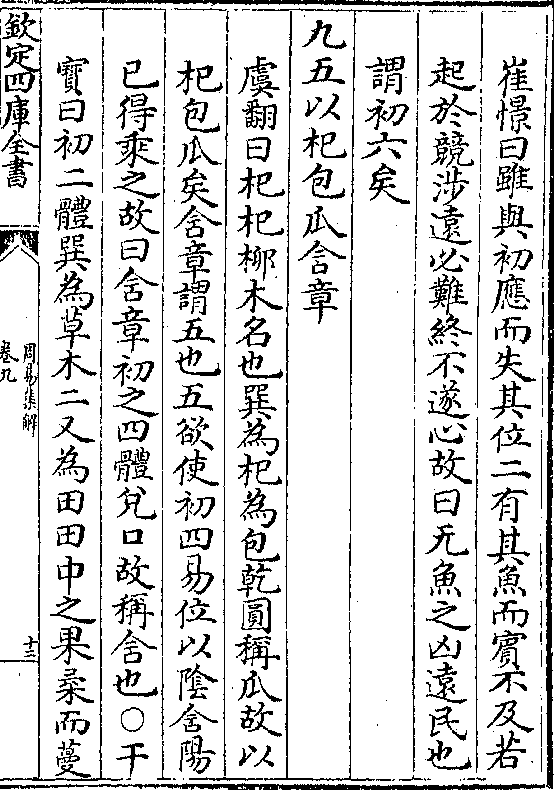 崔憬曰雖與初應而失其位二有其魚而賔不及若
起於競涉遠必難終不遂心故曰无魚之凶遠民也
謂初六矣
九五以杞包瓜含章
虞翻曰杞杞栁木名也巽為杞為包乾圓稱瓜故以
杞包瓜矣含章謂五也五欲使初四易位以陰含陽
已得乘之故曰含章初之四體兌口故稱含也○干
寳曰初二體巽為草木二又為田田中之果柔而蔓
欽定四庫全書
周易集解
卷九
十三